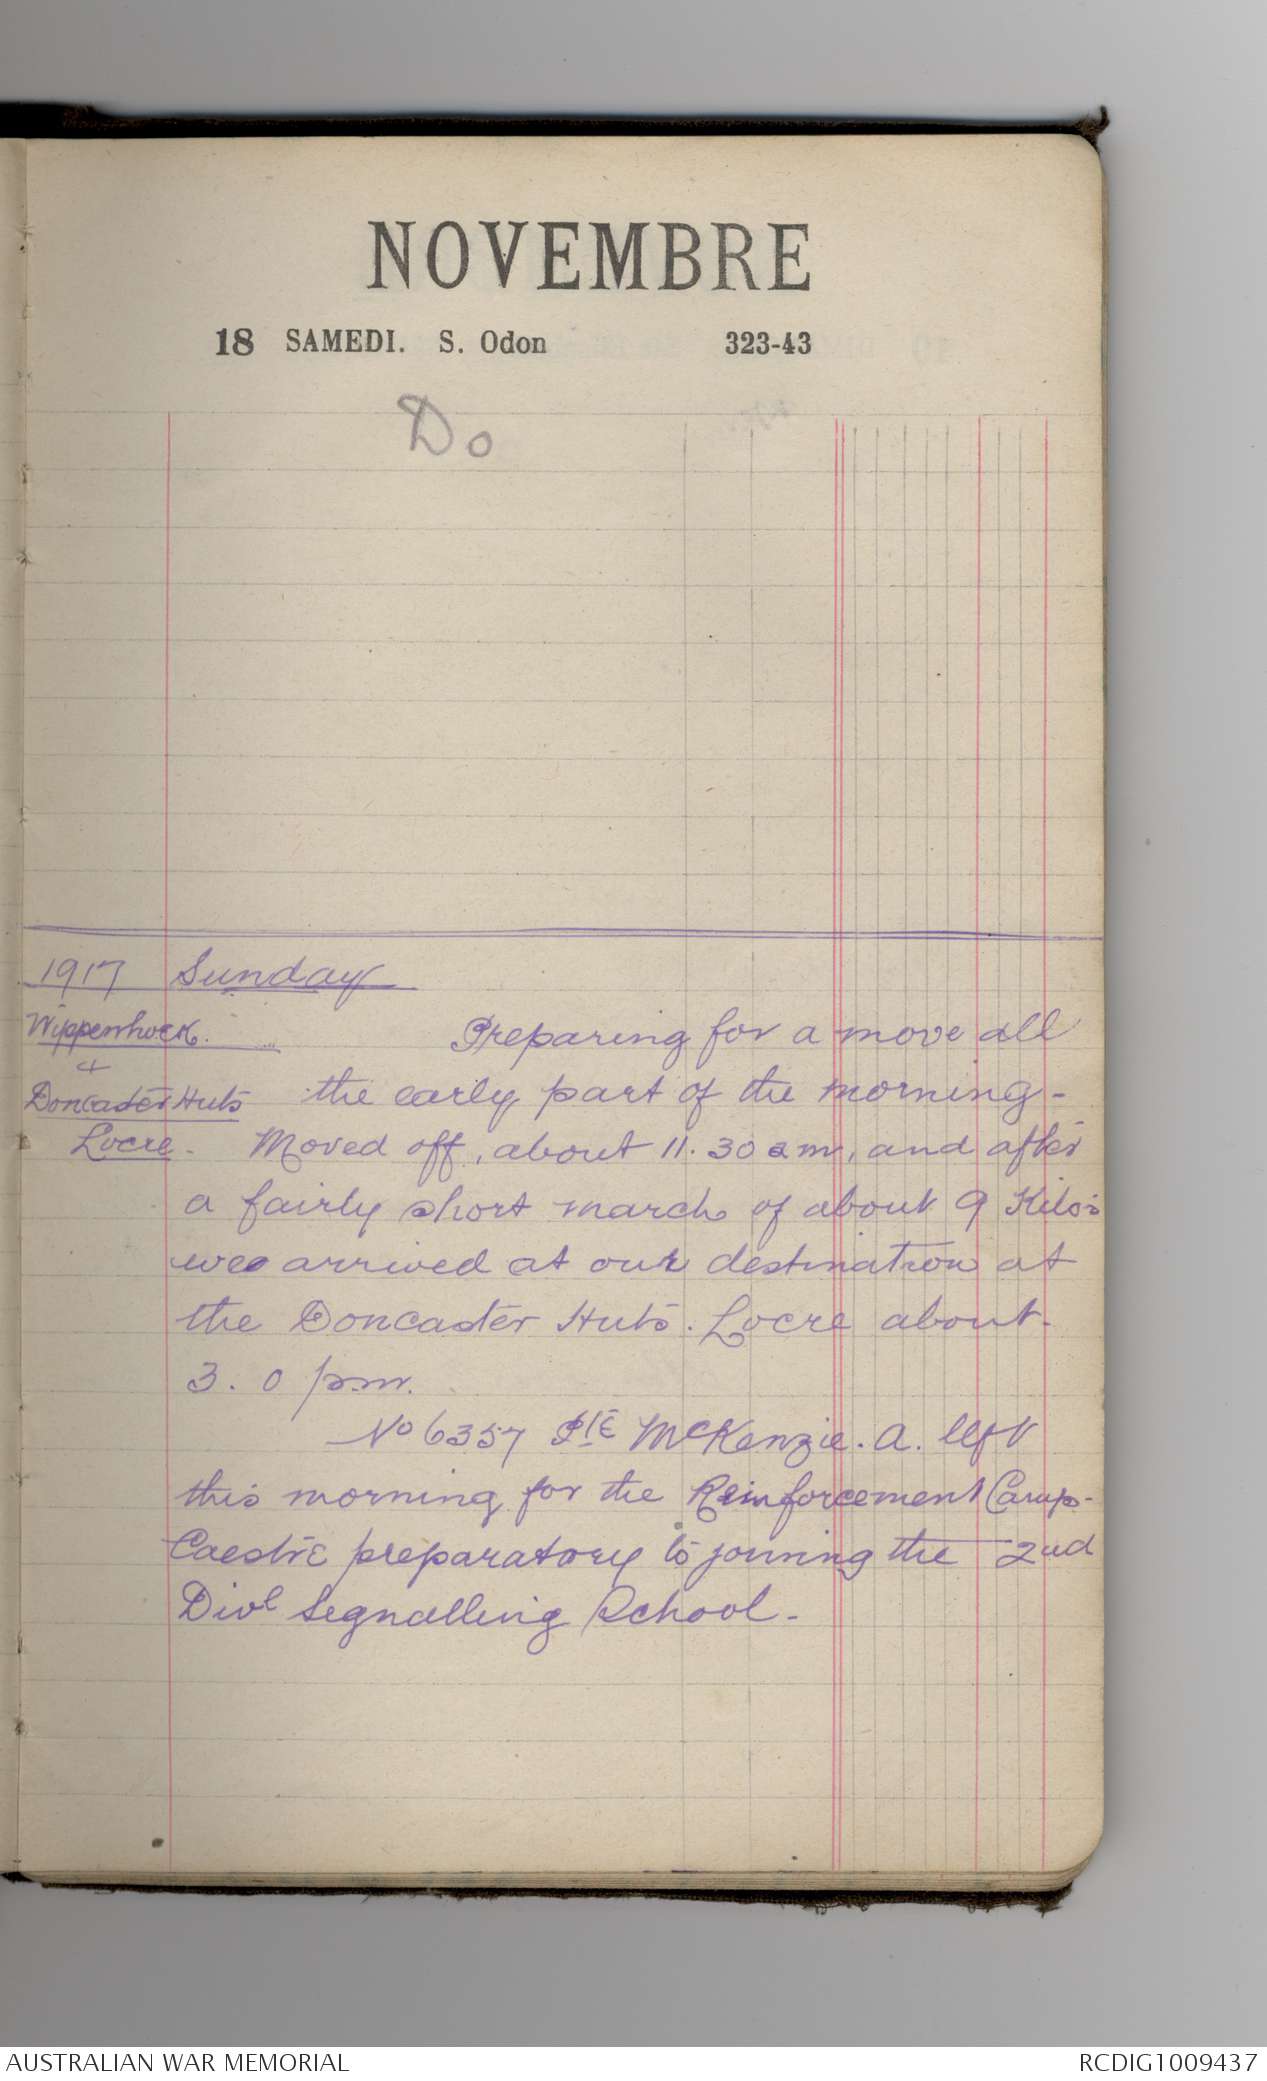 NOVEMBRE
18 SAMEDI. S. Odon 323-43
Do
1917 Sunday
Wippenhoek. Preparing for a move all
+
Doncaster Huts the early part of the morning -
Locre. Moved off, about 11.30 am, and after
a fairly short march of about 9 Kilos
we arrived at our destination at
the Doncaster Huts. Locre about
3.0 pm.
No 6357 Pte McKenzie. A. left
this morning for the Reinforcement Camp-
Caestre preparatory to joining the 2nd
Divl Signalling School -
AUSTRALIAN WAR MEMORIAL RCDIG1009437